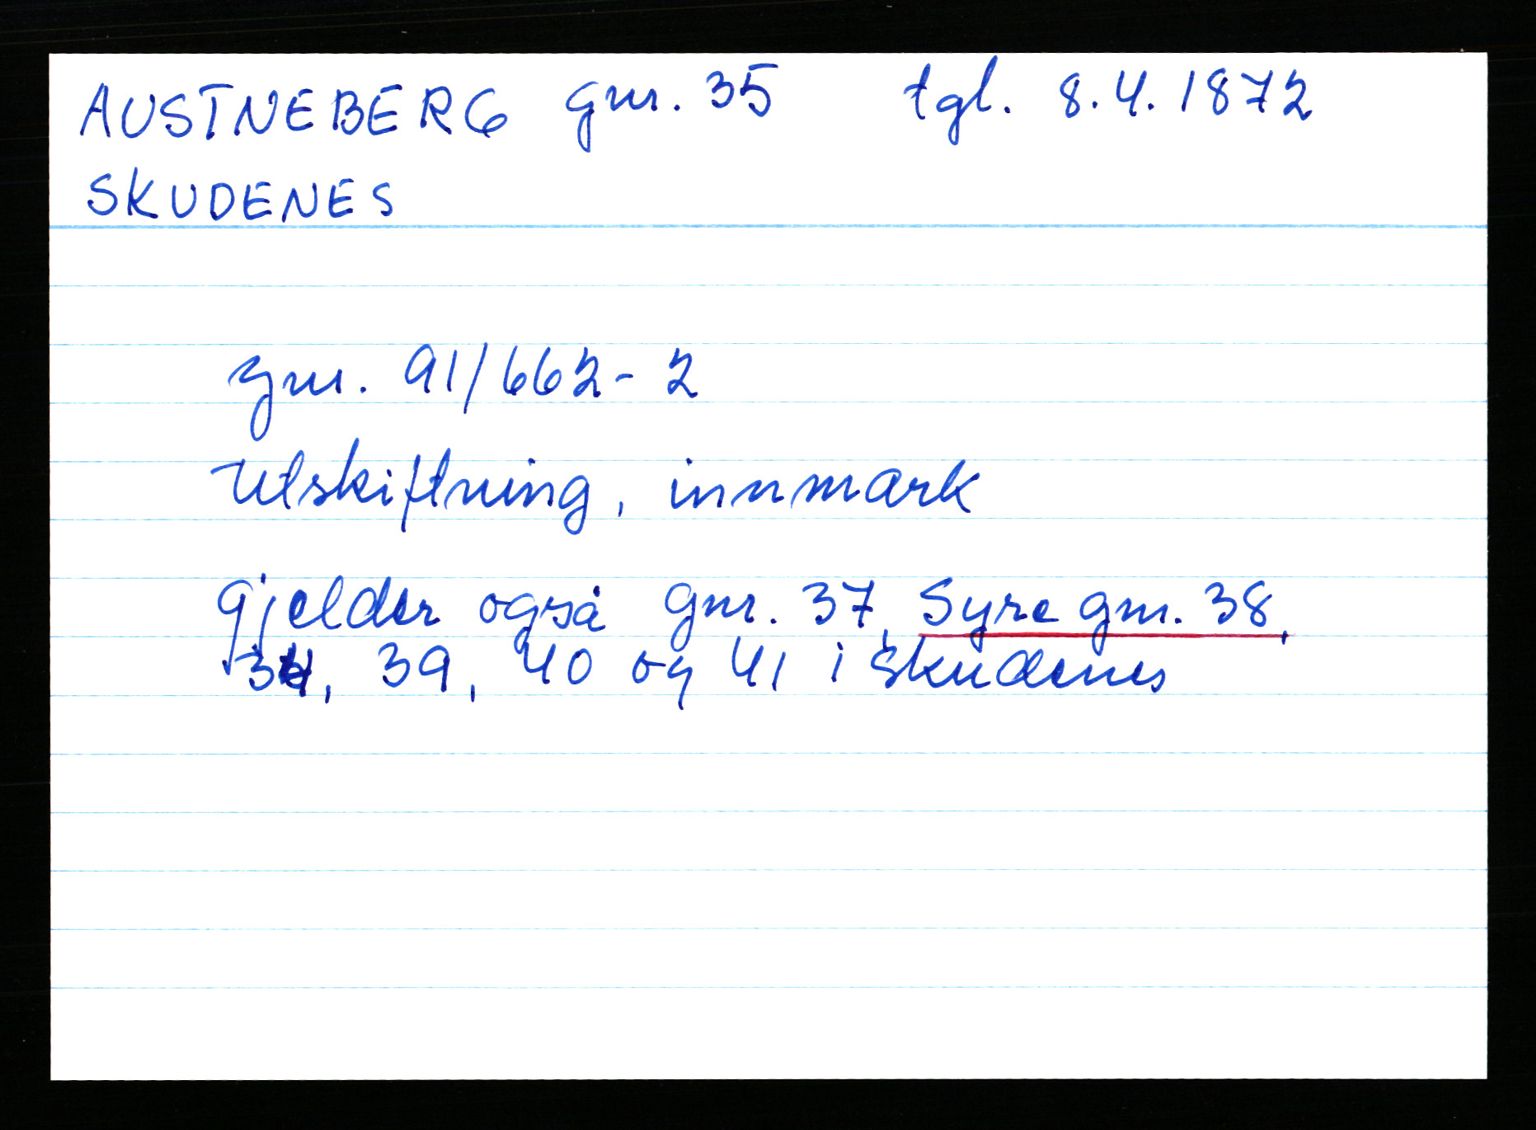 AUSTNEBERG gnr. 35 tgl. 8.4.1872
SKUDENES
gnr. 91/662-2
Utskiftning, innmark
gjelder også gnr. 37, Syre gnr. 38,
34, 39, 40 og 41 i Skudenes